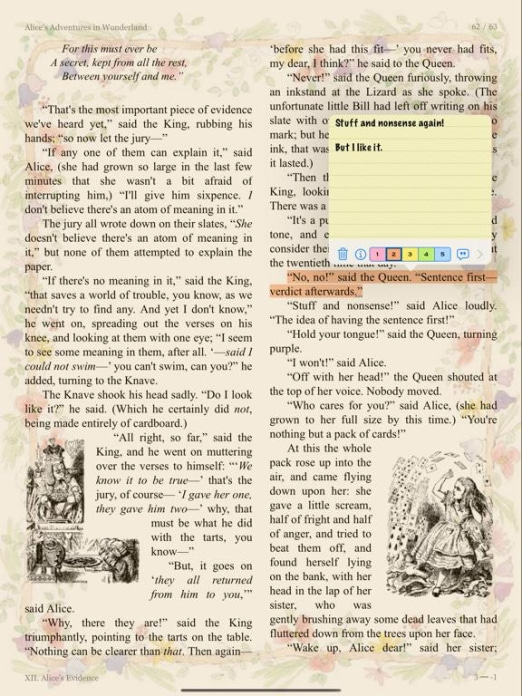 Alice's Adventures in Wonderland
62 / 63
For this must ever be
A secret, kept from all the rest,
Between yourself and me.”
“That's the most important piece of evidence
we've heard yet,” said the King, rubbing his
hands; “so now let the jury—”
“If any one of them can explain it,” said
Alice, (she had grown so large in the last few
minutes that she wasn't a bit afraid of
interrupting him,) “I'll give him sixpence. I
don't believe there's an atom of meaning in it.”
The jury all wrote down on their slates, “She
doesn't believe there's an atom of meaning in
it,” but none of them attempted to explain the
paper.
“If there's no meaning in it,” said the King,
“that saves a world of trouble, you know, as we
needn't try to find any. And yet I don't know,”
he went on, spreading out the verses on his
knee, and looking at them with one eye; “I seem
to see some meaning in them, after all. ‘—said I
could not swim—’ you can't swim, can you?” he
added, turning to the Knave.
The Knave shook his head sadly. “Do I look
like it?” he said. (Which he certainly did not,
being made entirely of cardboard.)
“All right, so far,” said the
King, and he went on muttering
over the verses to himself: “‘We
know it to be true—’ that's the
jury, of course— ‘I gave her one,
they gave him two—’ why, that
must be what he did
with the tarts, you
know—”
“But, it goes on
‘they all returned
from him to you,’”
said Alice.
“Why, there they are!” said the King
triumphantly, pointing to the tarts on the table.
“Nothing can be clearer than that. Then again—
‘before she had this fit—’ you never had fits,
my dear, I think?” he said to the Queen.
“Never!” said the Queen furiously, throwing
an inkstand at the Lizard as she spoke. (The
unfortunate little Bill had left off writing on his
slate with o
mark; but he
ink, that was
it lasted.)
“Then th
King, lookin
There was a
“It's a pu
tone, and e
consider thei
the twentieth time that day.
Stuff and nonsense again!
But I like it.
1 2 3 4 5
“No, no!” said the Queen. “Sentence first—
verdict afterwards.”
“Stuff and nonsense!” said Alice loudly.
“The idea of having the sentence first!”
“Hold your tongue!” said the Queen, turning
purple.
“I won't!” said Alice.
“Off with her head!” the Queen shouted at
the top of her voice. Nobody moved.
“Who cares for you?” said Alice, (she had
grown to her full size by this time.) “You're
nothing but a pack of cards!”
At this the whole
pack rose up into the
air, and came flying
down upon her: she
gave a little scream,
half of fright and half
of anger, and tried to
beat them off, and
found herself lying
on the bank, with her
head in the lap of her
sister, who was
gently brushing away some dead leaves that had
fluttered down from the trees upon her face.
“Wake up, Alice dear!” said her sister;
XII. Alice's Evidence
3 — -1